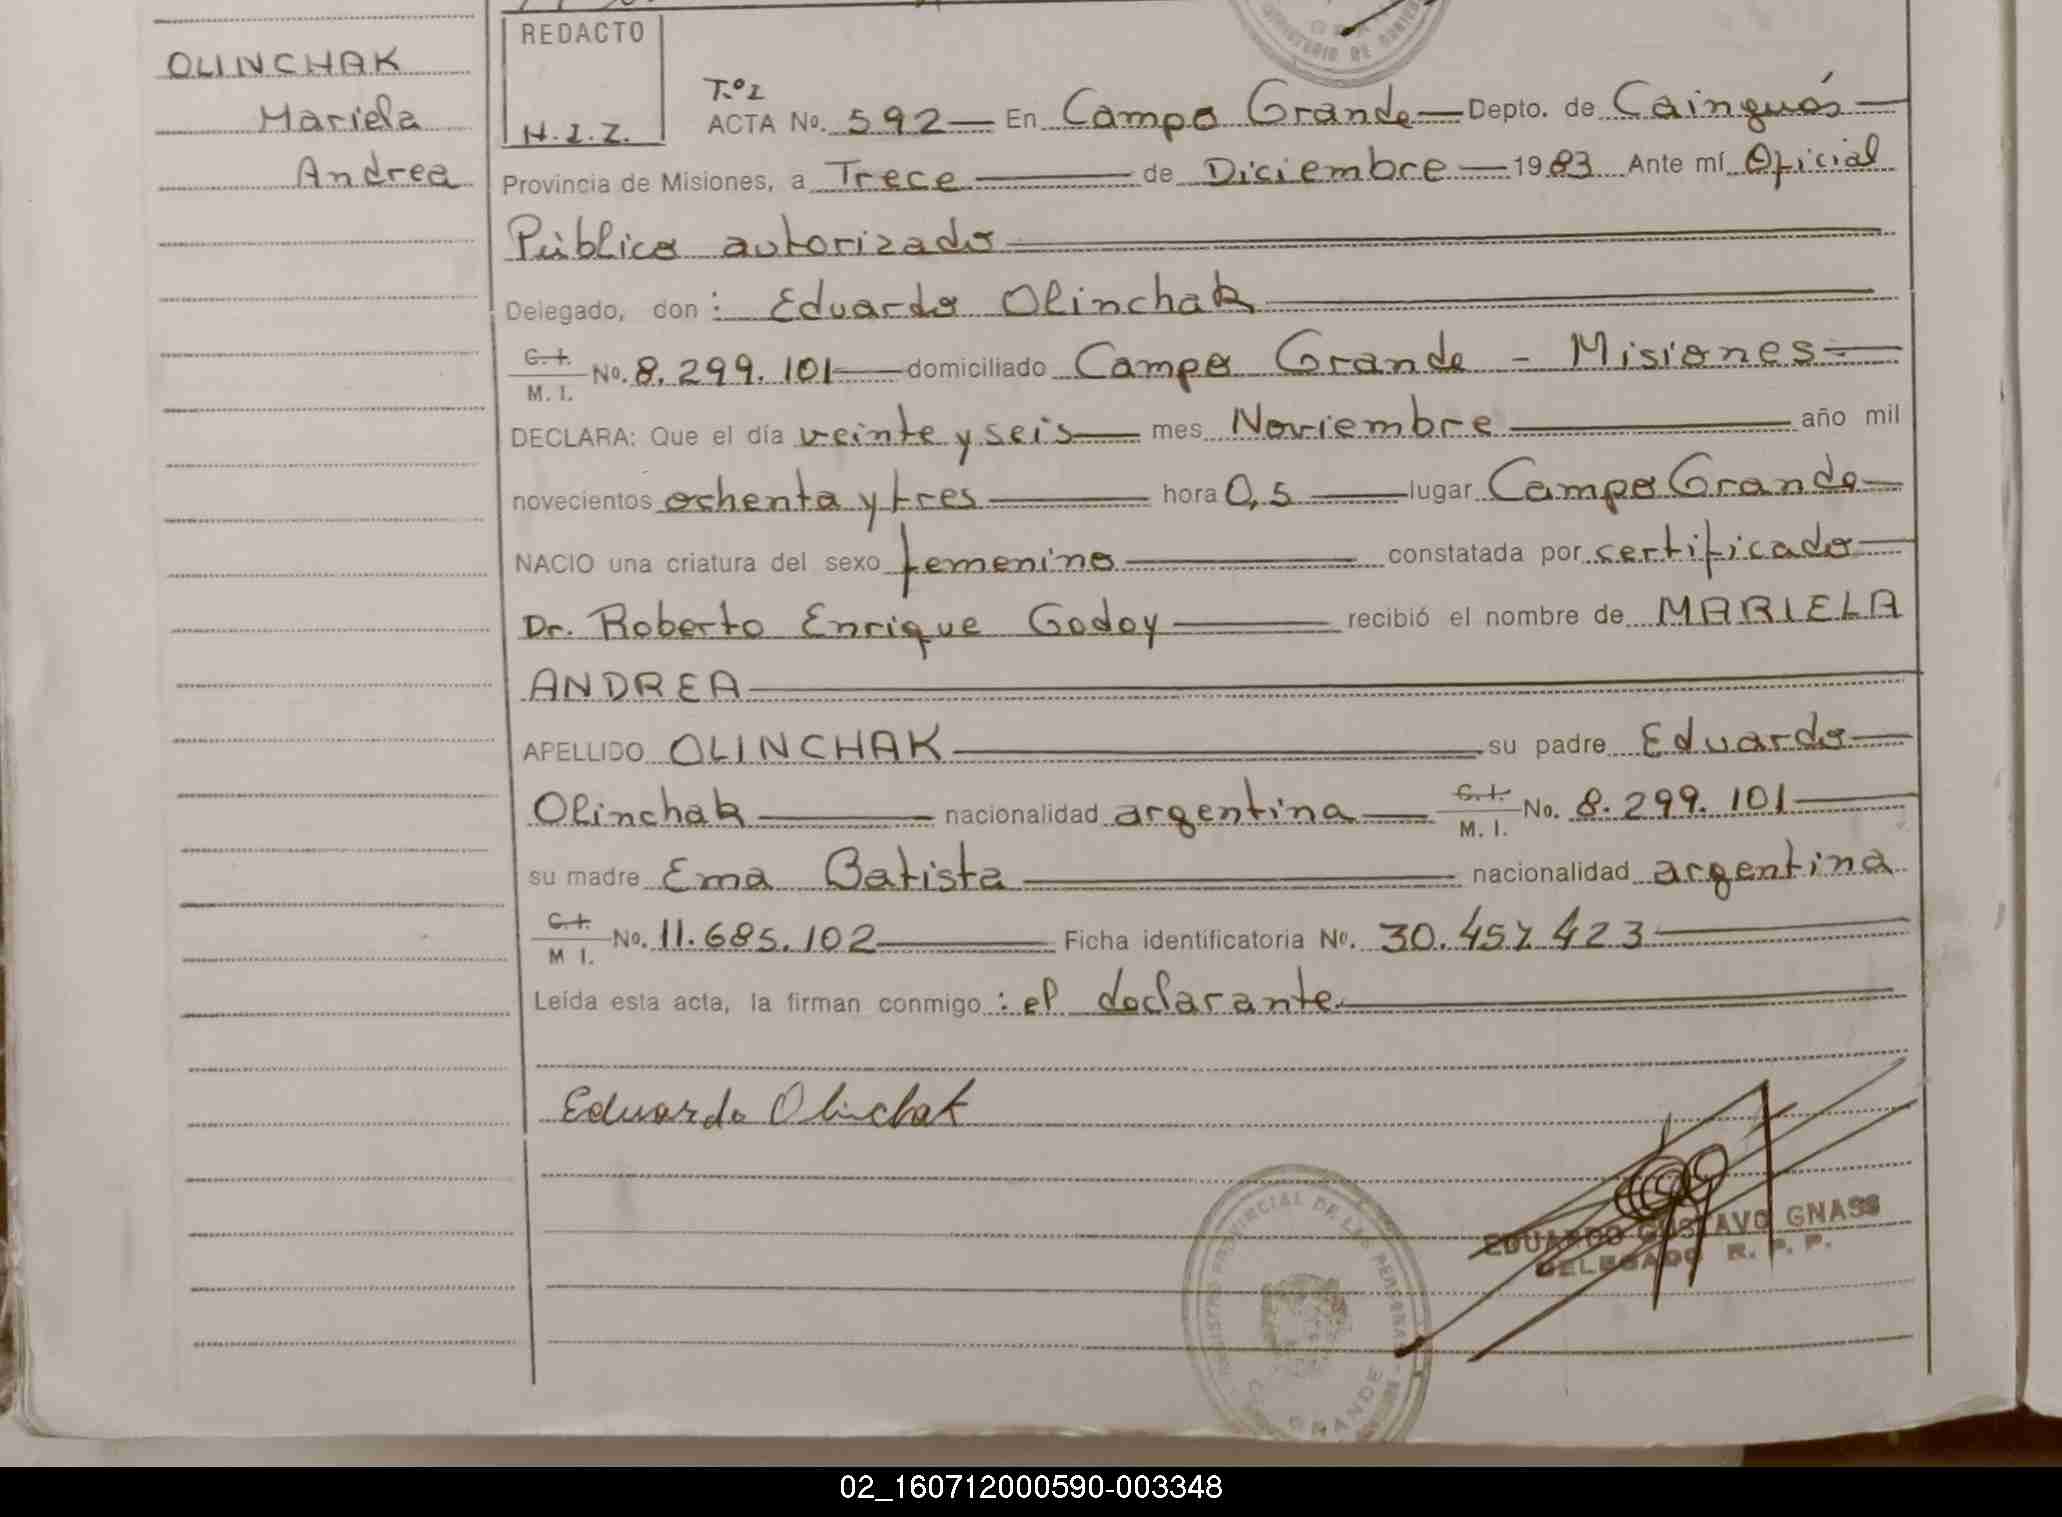 OLINCHAK
Mariela
Andrea
REDACTO
H.I.Z.
MINISTERIO DE
T.º I
ACTA No. 592 En Campo Grande Depto. de Cainguás
Provincia de Misiones, a Trece de Diciembre 1983 Ante mí Oficial
Público autorizado
Delegado, don: Eduardo Olinchak
C.I. M.I. No. 8.299.101 domiciliado Campo Grande - Misiones
DECLARA: Que el día veinte y seis mes Noviembre año mil
novecientos ochenta y tres hora 0,5 lugar Campo Grande
NACIO una criatura del sexo femenino constatada por certificado
Dr. Roberto Enrique Godoy recibió el nombre de MARIELA
ANDREA
APELLIDO OLINCHAK su padre Eduardo
Olinchak nacionalidad argentina C.I. M.I. No. 8.299.101
su madre Ema Batista nacionalidad argentina
C.I. M I. No. 11.685.102 Ficha identificatoria No. 30.457.423
Leída esta acta, la firman conmigo: el declarante
Eduardo Olinchak
EDUARDO GUSTAVO GNASS
DELEGADO R. P. P.
REGISTRO PROVINCIAL DE LAS PERSONAS
GRANDE
02_160712000590-003348